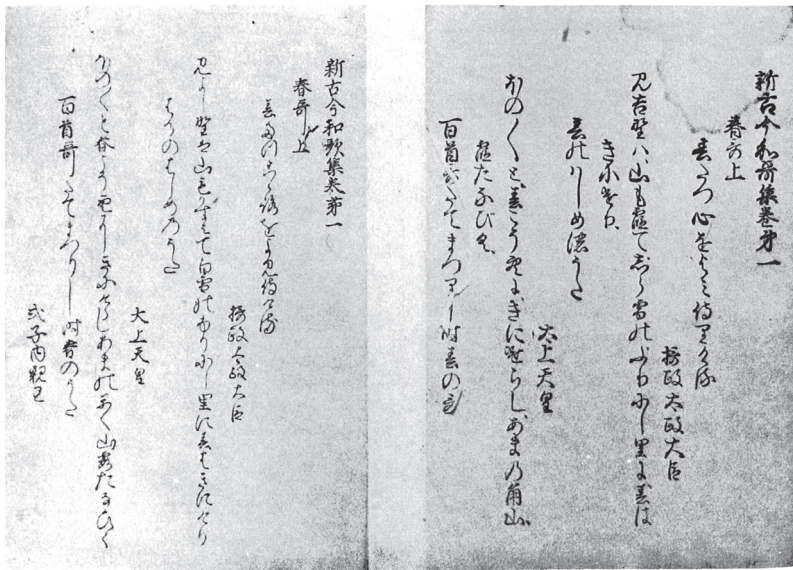 新古今和哥集巻第一
春哥上
春たつ心をよみ侍りける
摂政太政大臣
み吉野ハ山も霞てしら雪のふりにし里に春は
きにけり
春のはしめのうた
太上天皇
ほの〱と春こそ空にきにけらしあまの香山
霞たなびく
百首哥たてまつりし時春の哥
新古今和歌集巻第一
春哥上
春たつこゝろをよみ侍ける
摂政太政大臣
みよし野は山もかすみて白雪のふりにし里に春はきにけり
はるのはしめのうた
太上天皇
ほの〱と春こそ空にきにけらしあまのかく山霞たなひく
百首哥たてまつりし時春のうた
式子内親王